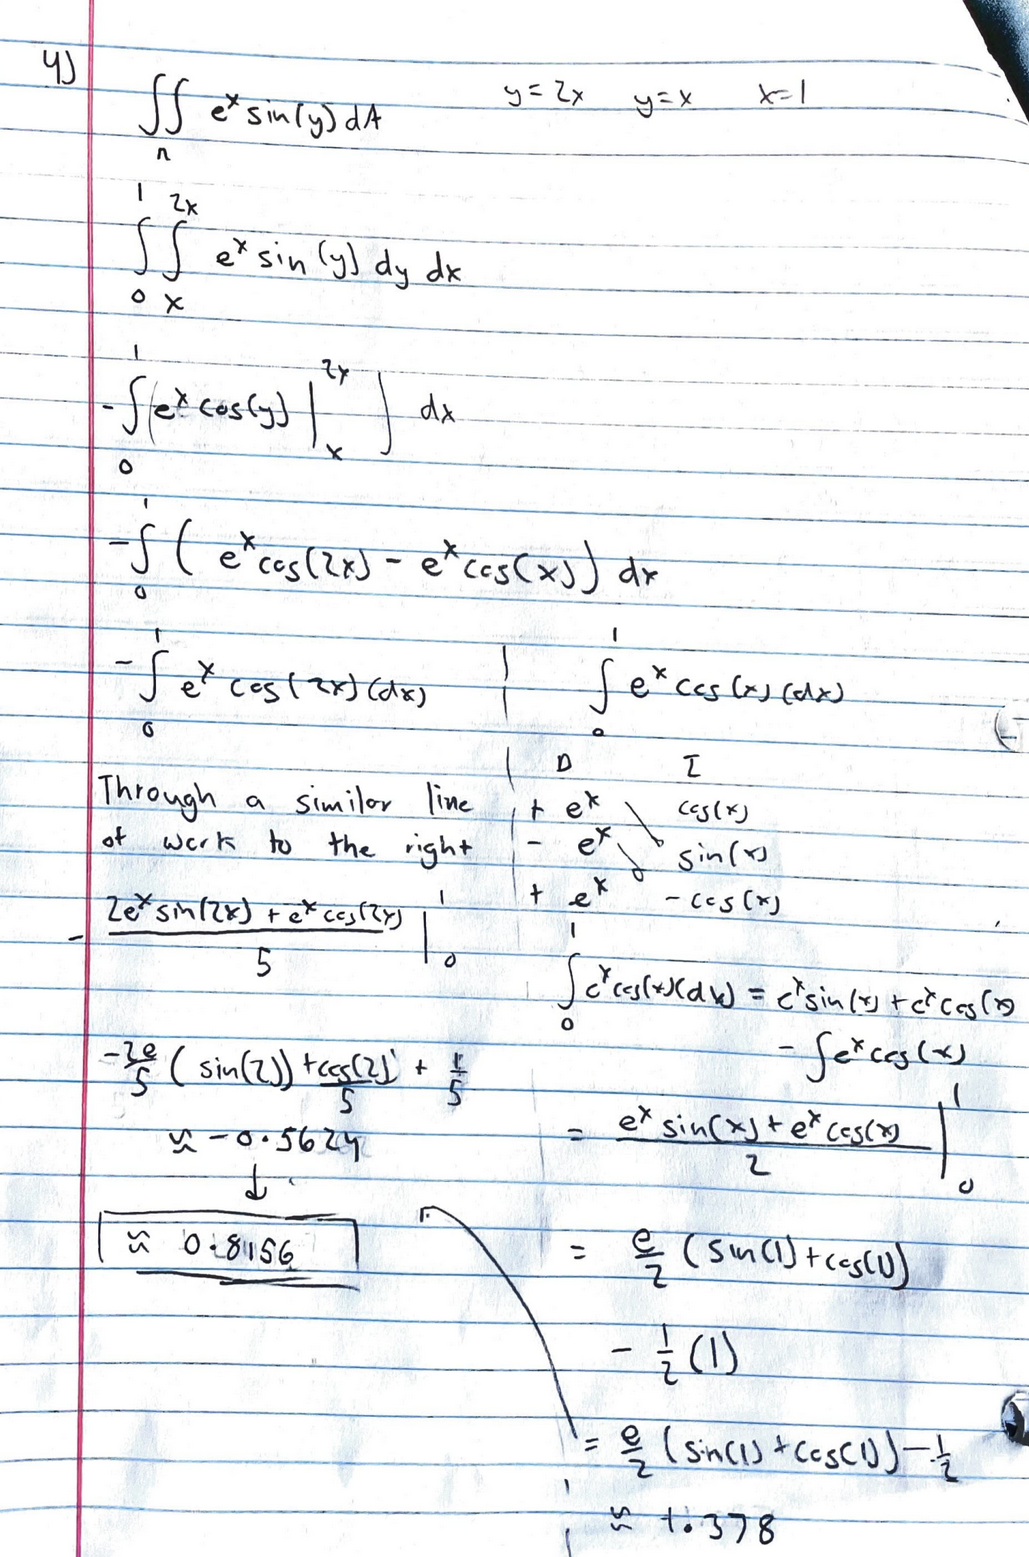 4)
∬ e^x sin(y) dA    y = 2x    y = x    x = 1
R
∫_0^1 ∫_x^{2x} e^x sin(y) dy dx
-∫_0^1 (e^x cos(y) |_x^{2x} ) dx
-∫_0^1 ( e^x cos(2x) - e^x cos(x) ) dx
-∫_0^1 e^x cos(2x) (dx)
Through a similar line
of work to the right
- (2e^x sin(2x) + e^x cos(2x))/5 |_0^1
-2e/5 ( sin(2)) + cos(2)/5 + 1/5
≈ -0.5624
↓
≈ 0.8156
∫_0^1 e^x cos(x) (dx)
D    I
+ e^x    cos(x)
- e^x    sin(x)
+ e^x    - cos(x)
∫_0^1 e^x cos(x) (dx) = e^x sin(x) + e^x cos(x)
- ∫ e^x cos(x)
= (e^x sin(x) + e^x cos(x))/2 |_0^1
= e/2 (sin(1) + cos(1))
- 1/2 (1)
= e/2 (sin(1) + cos(1)) - 1/2
≈ 1.378